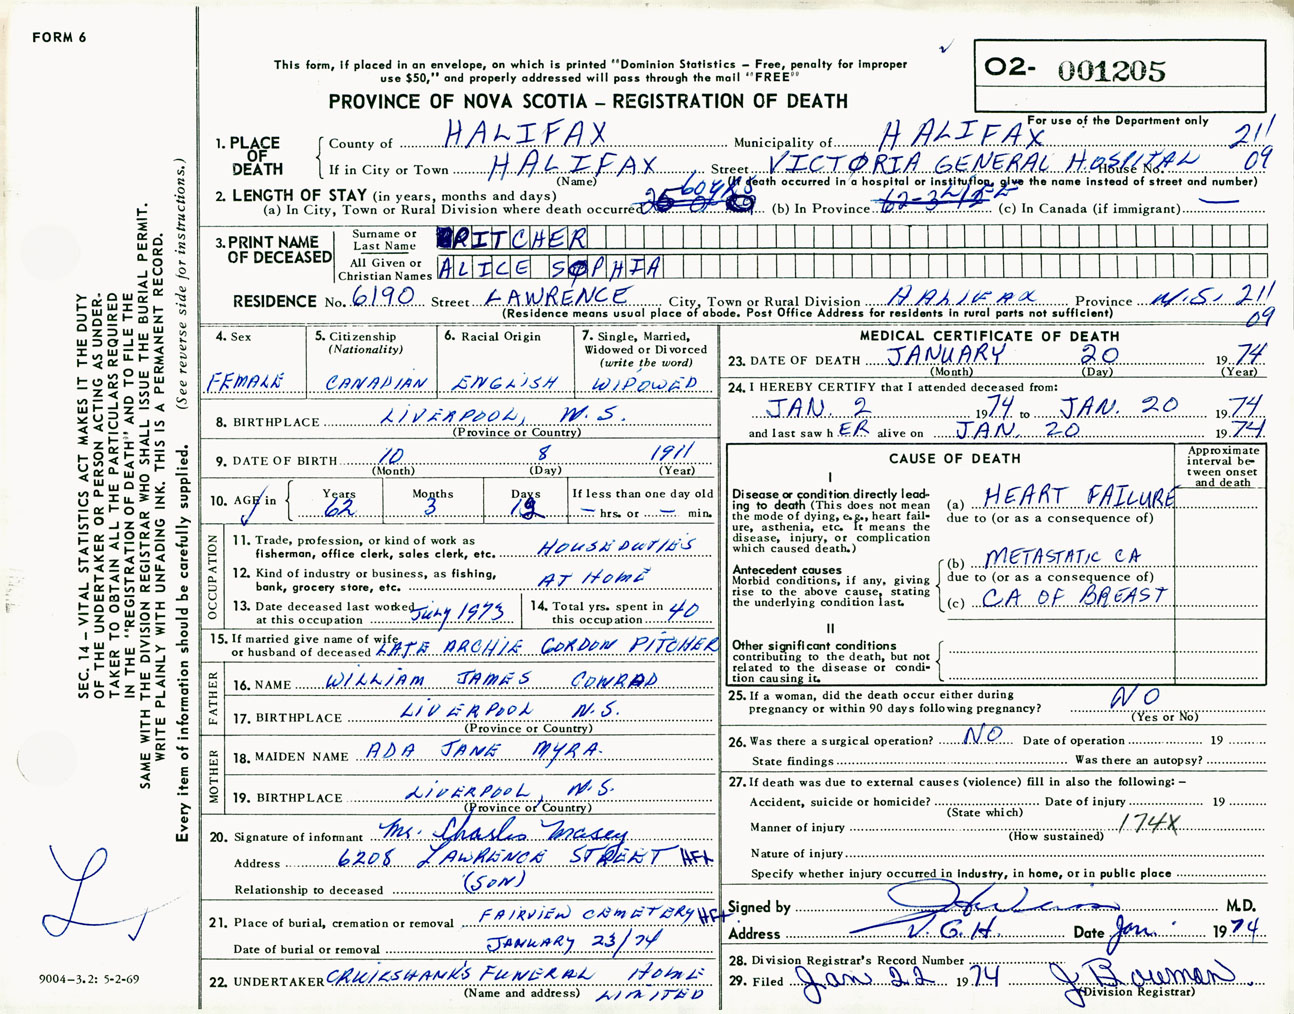 FORM 6
This form, if placed in an envelope, on which is printed "Dominion Statistics – Free, penalty for improper
use $50," and properly addressed will pass through the mail "FREE"
PROVINCE OF NOVA SCOTIA – REGISTRATION OF DEATH
O2- 001205
For use of the Department only
211
09
1. PLACE OF DEATH
County of HALIFAX Municipality of HALIFAX
If in City or Town HALIFAX Street VICTORIA GENERAL HOSPITAL House No.
(Name) (If death occurred in a hospital or institution, give the name instead of street and number)
2. LENGTH OF STAY (in years, months and days) 60 yrs
(a) In City, Town or Rural Division where death occurred (b) In Province (c) In Canada (if immigrant) —
3. PRINT NAME OF DECEASED
Surname or Last Name RITCHER
All Given or Christian Names ALICE SOPHIA
RESIDENCE No. 6190 Street LAWRENCE City, Town or Rural Division HALIFAX Province N.S. 211
09
(Residence means usual place of abode. Post Office Address for residents in rural parts not sufficient)
4. Sex
FEMALE
5. Citizenship (Nationality)
CANADIAN
6. Racial Origin
ENGLISH
7. Single, Married, Widowed or Divorced (write the word)
WIDOWED
8. BIRTHPLACE LIVERPOOL, N.S.
(Province or Country)
9. DATE OF BIRTH 10 8 1911
(Month) (Day) (Year)
10. AGE in Years 62 Months 3 Days 12 If less than one day old — hrs. or — min.
OCCUPATION
11. Trade, profession, or kind of work as
fisherman, office clerk, sales clerk, etc. HOUSEDUTIES
12. Kind of industry or business, as fishing,
bank, grocery store, etc. AT HOME
13. Date deceased last worked
at this occupation July 1973
14. Total yrs. spent in
this occupation 40
15. If married give name of wife
or husband of deceased LATE ARCHIE GORDON PITCHER
FATHER
16. NAME WILLIAM JAMES CONRAD
17. BIRTHPLACE LIVERPOOL N.S.
(Province or Country)
MOTHER
18. MAIDEN NAME ADA JANE MYRA
19. BIRTHPLACE LIVERPOOL, N.S.
(Province or Country)
20. Signature of informant Mr. Charles Masey
Address 6208 LAWRENCE STREET HFX
Relationship to deceased (SON)
21. Place of burial, cremation or removal FAIRVIEW CEMETERY HFX
Date of burial or removal JANUARY 23/74
22. UNDERTAKER CRUIKSHANK'S FUNERAL HOME
(Name and address) LIMITED
MEDICAL CERTIFICATE OF DEATH
23. DATE OF DEATH JANUARY 20 1974
(Month) (Day) (Year)
24. I HEREBY CERTIFY that I attended deceased from:
JAN. 2 1974 to JAN. 20 1974
and last saw hER alive on JAN. 20 1974
CAUSE OF DEATH
Approximate interval between onset and death
I
Disease or condition directly lead-
ing to death (This does not mean
the mode of dying, e.g., heart fail-
ure, asthenia, etc. It means the
disease, injury, or complication
which caused death.)
(a) HEART FAILURE
due to (or as a consequence of)
Antecedent causes
Morbid conditions, if any, giving
rise to the above cause, stating
the underlying condition last.
(b) METASTATIC CA
due to (or as a consequence of)
(c) CA OF BREAST
II
Other significant conditions
contributing to the death, but not
related to the disease or condi-
tion causing it.
25. If a woman, did the death occur either during
pregnancy or within 90 days following pregnancy? NO
(Yes or No)
26. Was there a surgical operation? NO Date of operation 19
State findings Was there an autopsy?
27. If death was due to external causes (violence) fill in also the following: –
Accident, suicide or homicide? Date of injury 19
(State which)
Manner of injury 174X
(How sustained)
Nature of injury
Specify whether injury occurred in industry, in home, or in public place
Signed by M.D.
Address V.G.H. Date Jan. 1974
28. Division Registrar's Record Number
29. Filed Jan 22 1974 J Bowman
(Division Registrar)
SEC. 14 – VITAL STATISTICS ACT MAKES IT THE DUTY
OF THE UNDERTAKER OR PERSON ACTING AS UNDER-
TAKER TO OBTAIN ALL THE PARTICULARS REQUIRED
IN THE "REGISTRATION OF DEATH" AND TO FILE THE
SAME WITH THE DIVISION REGISTRAR WHO SHALL ISSUE THE BURIAL PERMIT.
WRITE PLAINLY WITH UNFADING INK. THIS IS A PERMANENT RECORD.
Every item of information should be carefully supplied. (See reverse side for instructions.)
9004-3.2: 5-2-69